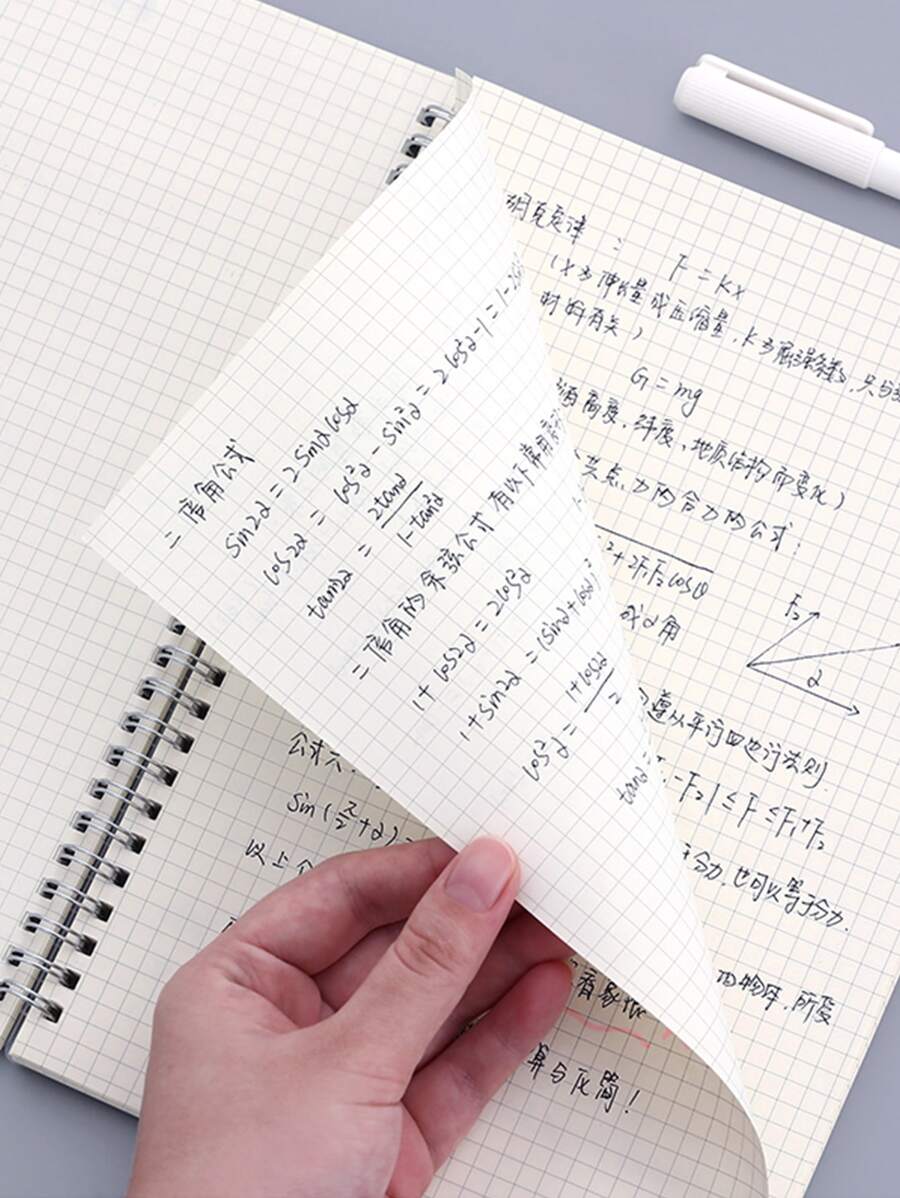 二倍角公式
sin2α = 2sinαcosα
cos2α = cos²α - sin²α = 2cos²α-1 = 1-2
tan2α = 2tanα / 1-tan²α
二倍角的余弦公式有以下常用
1+cos2α = 2cos²α
1+sin2α = (sinα+cosα)²
cos²α = 1+cos2α / 2
tanα=
胡克定律:
F=kx
(x为伸长量或压缩量,k为
材料有关)
G=mg
高度、纬度、地质结构而变化)
共点力的合力的公式:
²+2F₁F₂cosθ
α角
F₂
α
遵从平行四边行法则.
-F₂|≤F≤F₁+F₂
分力,也可以等于分力.
物体,所受
算与化简!
公式六:
sin(π/2+α)=
以上